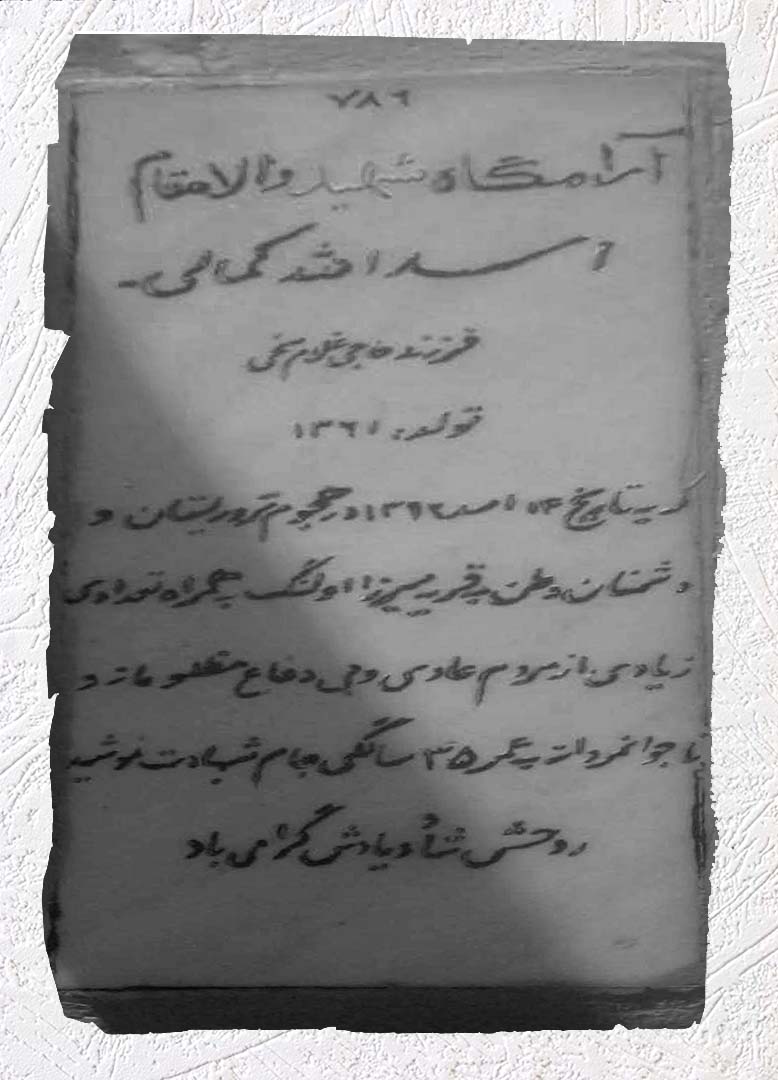 ۷۸۶
آرامگاه شهید والامقام
اسدالله کمالی
فرزند حاجی غلام سخی
تولد: ۱۳۶۱
که به تاریخ ۱۴ اسد ۱۳۹۶ در هجوم تروریستان و
دشمنان وطن به قریه میرزا اولنگ به همراه تعدادی
زیادی از مردم عادی و بی دفاع مظلومانه و
نا جوانمردانه به عمر ۳۵ سالگی جام شهادت نوشید
روحش شاد و یادش گرامی باد